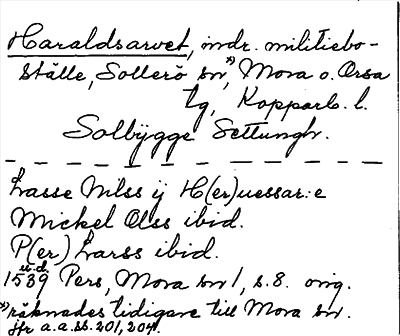 Haraldsarvet, indr. militiebo-
ställe, Sollerö sn,*) Mora o. Orsa
tg, Kopparb. l.
Solbÿgge Settungh.
Lasse Nilss ij H(er)uessar:e
Mickel Olss ibid.
P(er) Larss ibid.
u.d.
1539 Pers, Mora sn 1, s. 8. orig.
*) räknades tidigare till Mora sn.
jfr a.a. ss. 201, 204.